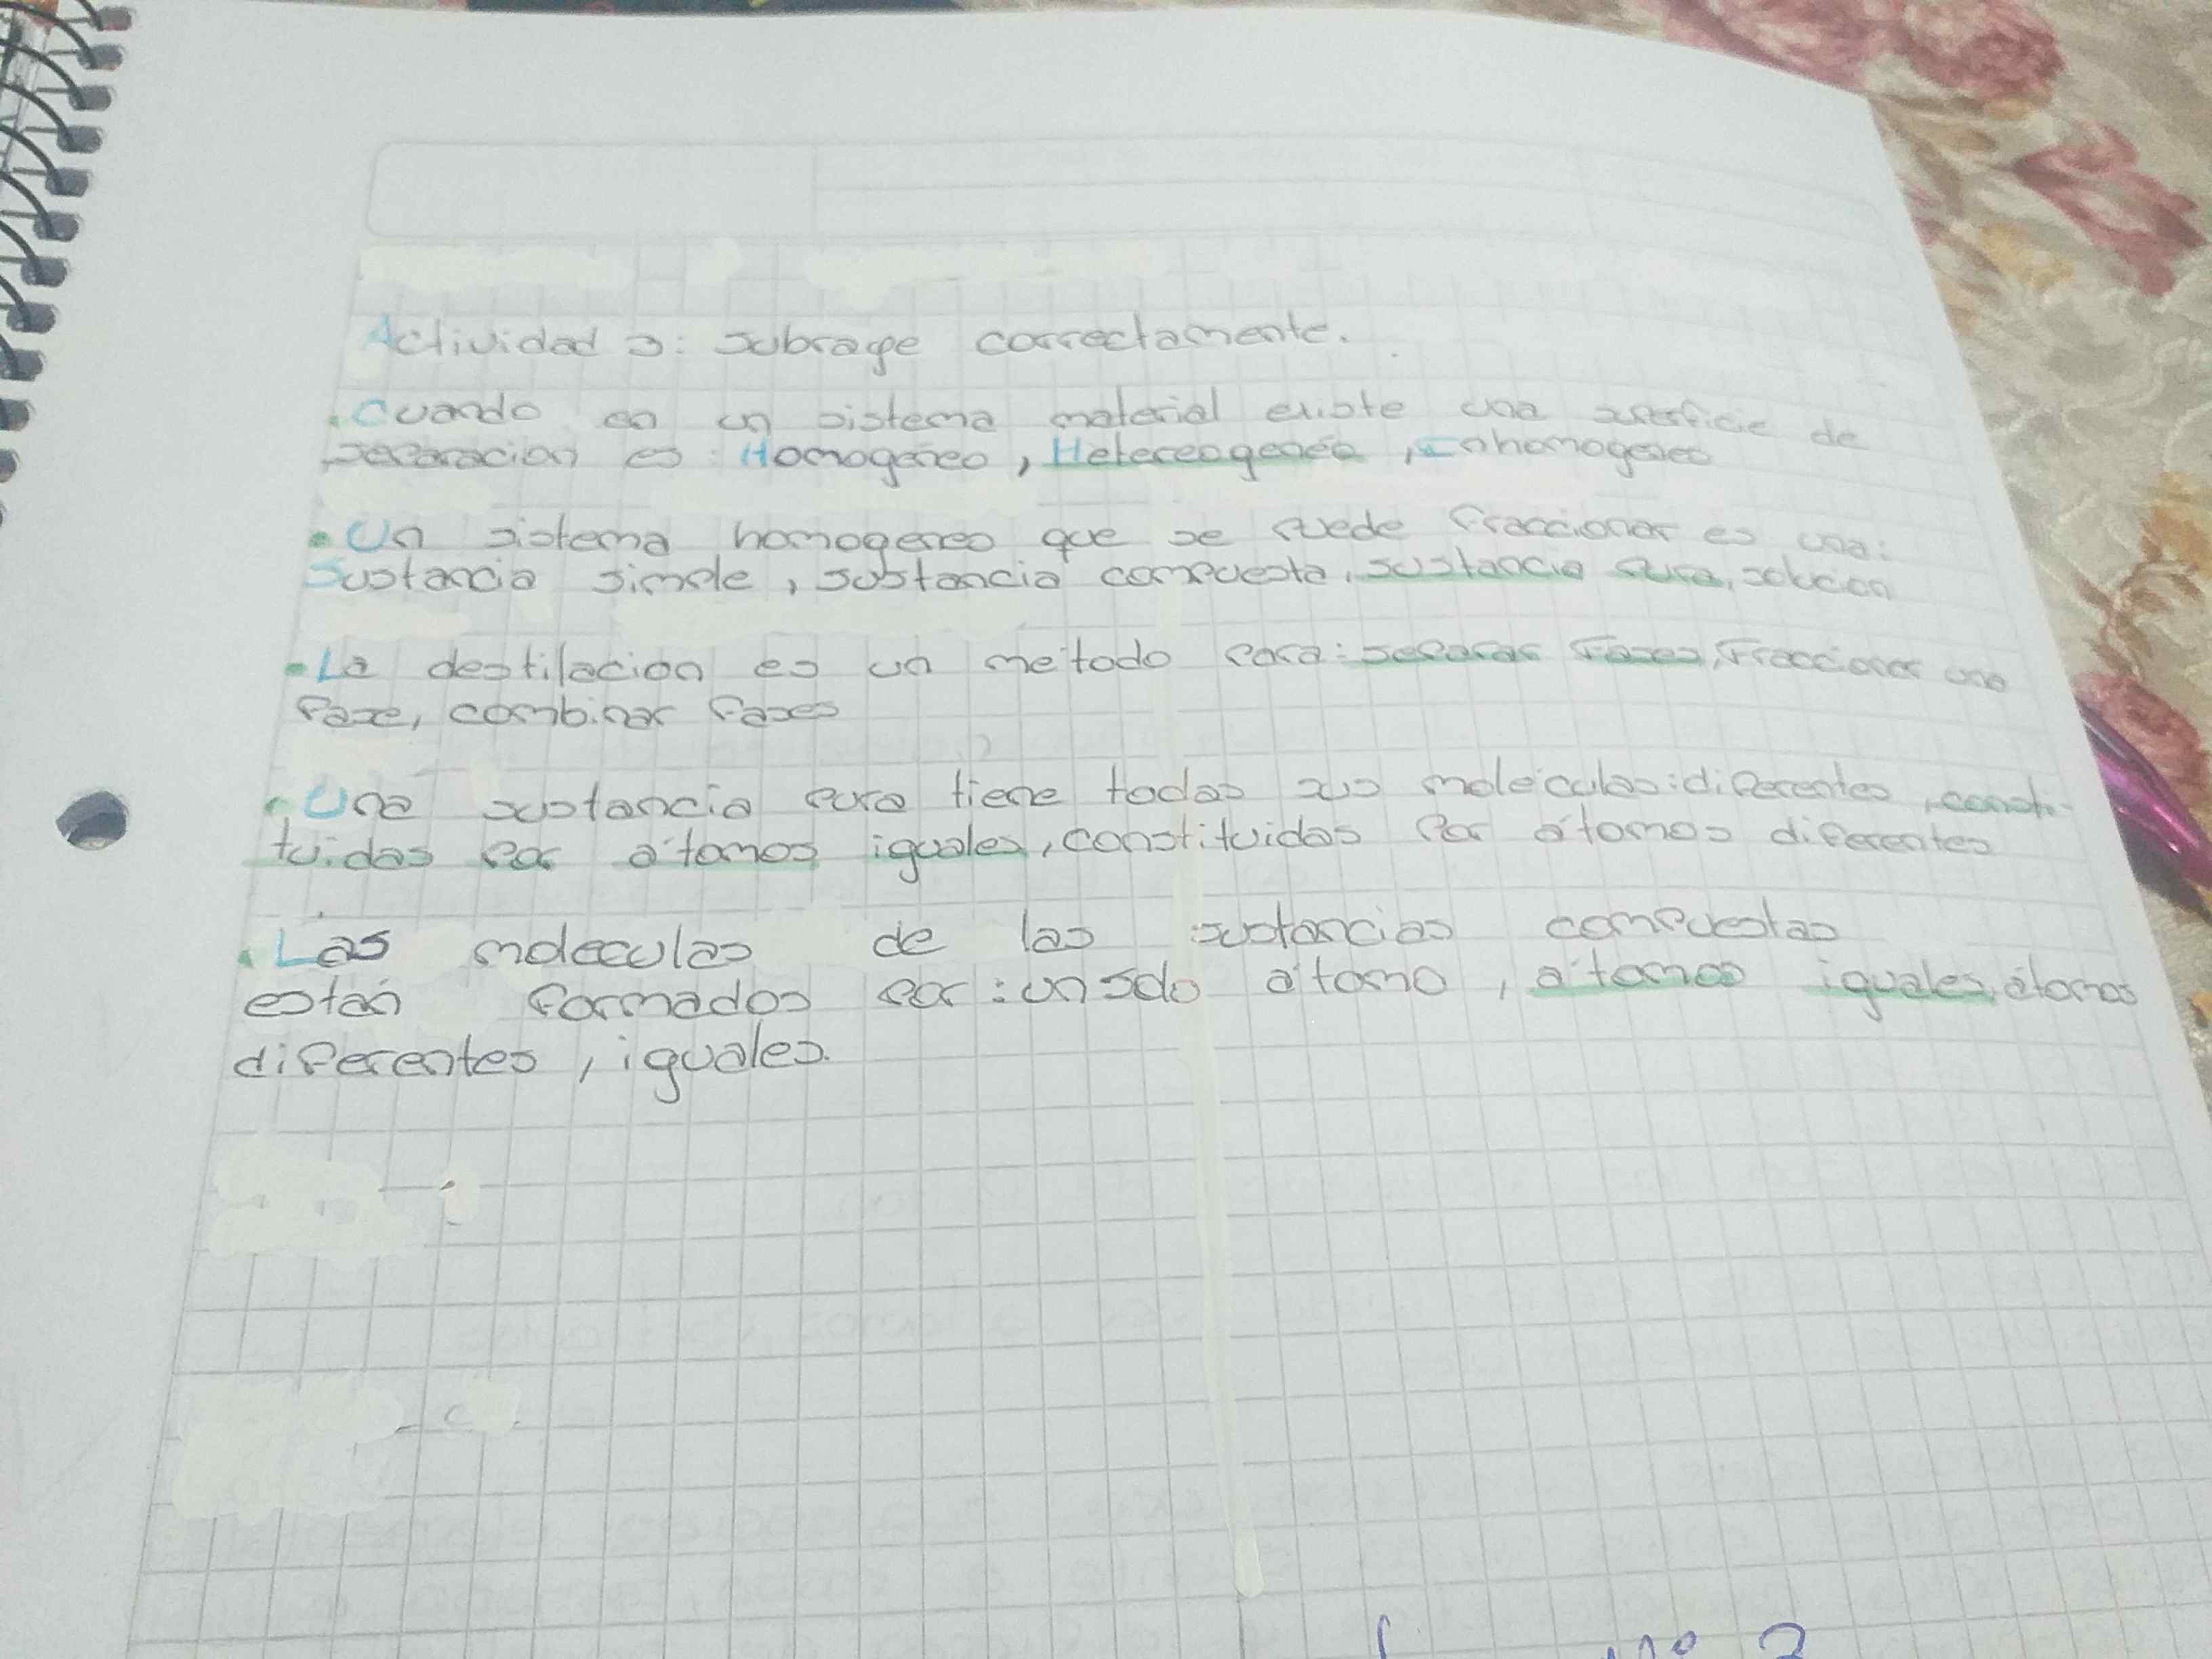 Actividad 3: Subraye correctamente.
• Cuando en un sistema material existe una superficie de
separacion es: Homogéneo, Hetereogenéo, Inhomogeneo
• Un sistema homogeneo que se puede fraccionar es una:
Sustancia simple, sustancia compuesta, sustancia pura, solucion
• La destilacion es un metodo para: separar fases, Fraccionar una
fase, combinar fases
• Una sustancia pura tiene todas sus moléculas: diferentes, consti-
tuidas por átomos iguales, constituidas por átomos diferentes
• Las moleculas de las sustancias compuestas
están formados por: un solo átomo, átomos iguales, átomos
diferentes, iguales.
Nº 2